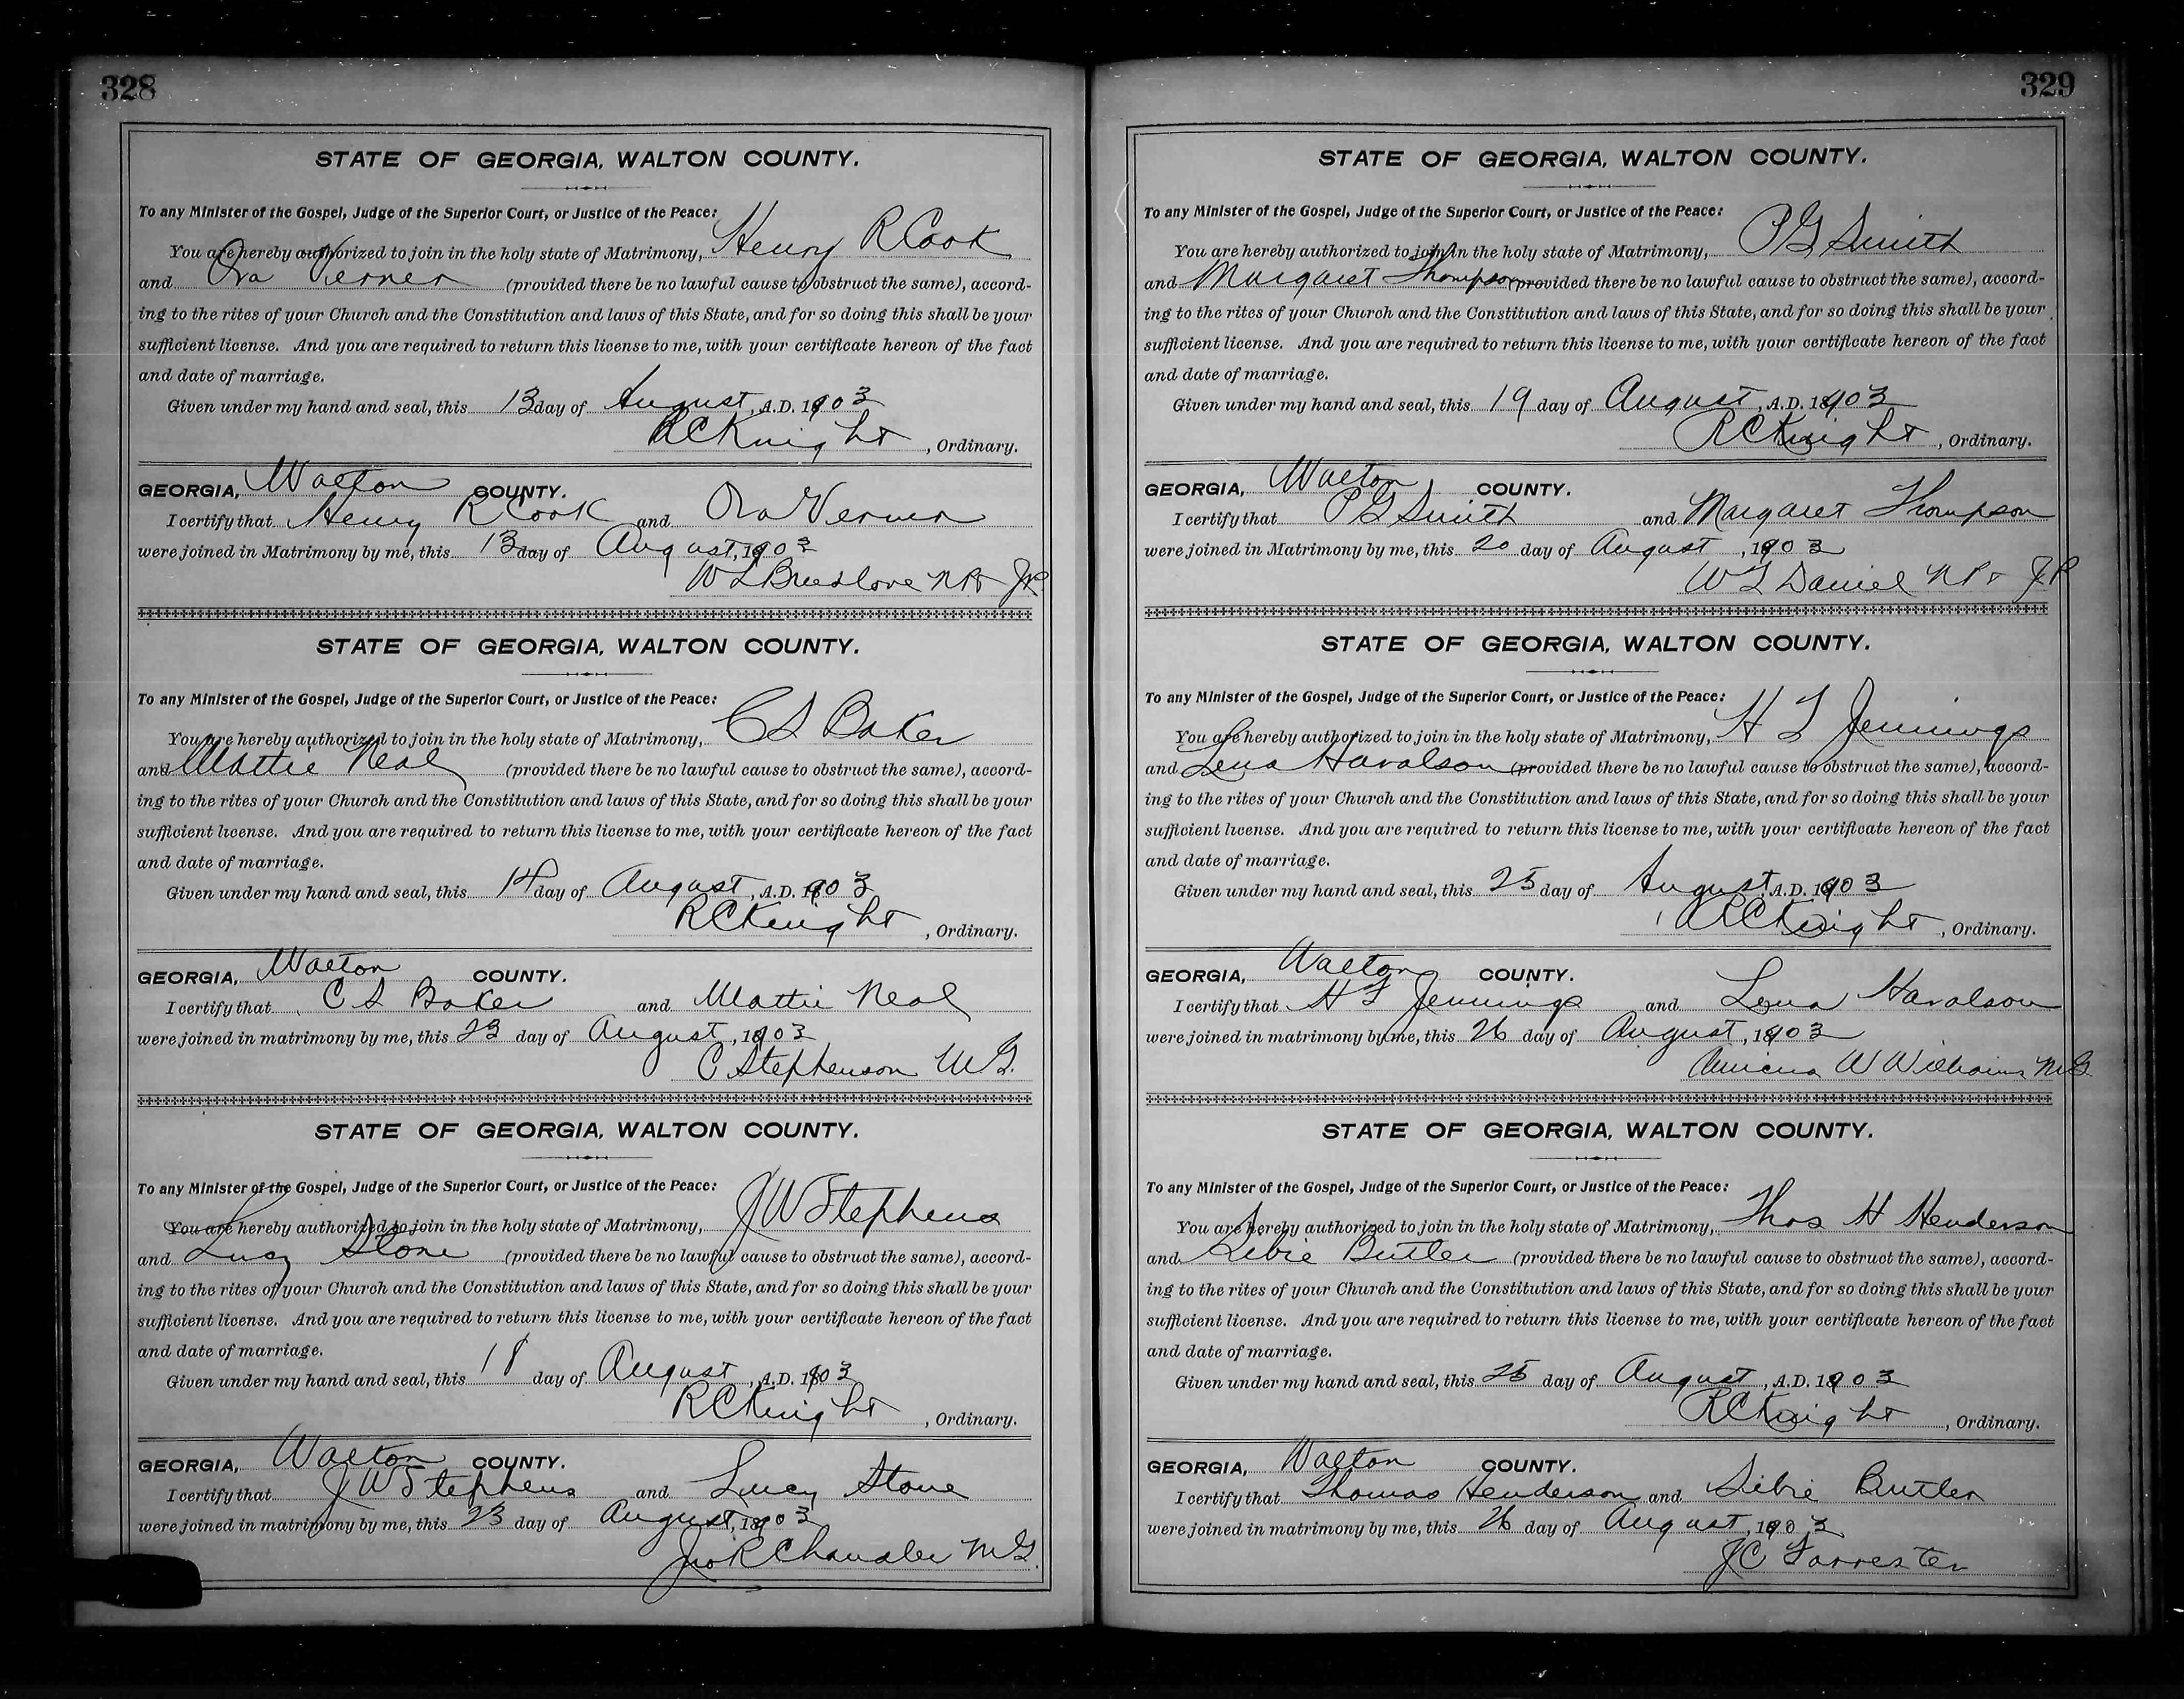 328
STATE OF GEORGIA, WALTON COUNTY.
To any Minister of the Gospel, Judge of the Superior Court, or Justice of the Peace:
You are hereby authorized to join in the holy state of Matrimony, Henry R Cook
and Ora Verner (provided there be no lawful cause to obstruct the same), accord-
ing to the rites of your Church and the Constitution and laws of this State, and for so doing this shall be your
sufficient license. And you are required to return this license to me, with your certificate hereon of the fact
and date of marriage.
Given under my hand and seal, this 13 day of August, A.D. 1903
RCKnight, Ordinary.
GEORGIA, Walton COUNTY.
I certify that Henry R Cook and Ora Verner
were joined in Matrimony by me, this 13 day of August, 1903
W L Breedlove NP & JP
STATE OF GEORGIA, WALTON COUNTY.
To any Minister of the Gospel, Judge of the Superior Court, or Justice of the Peace:
You are hereby authorized to join in the holy state of Matrimony, C S Baker
and Mattie Neal (provided there be no lawful cause to obstruct the same), accord-
ing to the rites of your Church and the Constitution and laws of this State, and for so doing this shall be your
sufficient license. And you are required to return this license to me, with your certificate hereon of the fact
and date of marriage.
Given under my hand and seal, this 14 day of August, A.D. 1903
RCKnight, Ordinary.
GEORGIA, Walton COUNTY.
I certify that C S Baker and Mattie Neal
were joined in matrimony by me, this 23 day of August, 1903
C Stephenson MG.
STATE OF GEORGIA, WALTON COUNTY.
To any Minister of the Gospel, Judge of the Superior Court, or Justice of the Peace:
You are hereby authorized to join in the holy state of Matrimony, J W Stephens
and Lucy Stone (provided there be no lawful cause to obstruct the same), accord-
ing to the rites of your Church and the Constitution and laws of this State, and for so doing this shall be your
sufficient license. And you are required to return this license to me, with your certificate hereon of the fact
and date of marriage.
Given under my hand and seal, this 18 day of August, A.D. 1903
RCKnight, Ordinary.
GEORGIA, Walton COUNTY.
I certify that J W Stephens and Lucy Stone
were joined in matrimony by me, this 23 day of August, 1903
Jno R Chandler MG.
329
STATE OF GEORGIA, WALTON COUNTY.
To any Minister of the Gospel, Judge of the Superior Court, or Justice of the Peace:
You are hereby authorized to join in the holy state of Matrimony, P G Smith
and Margaret Thompson (provided there be no lawful cause to obstruct the same), accord-
ing to the rites of your Church and the Constitution and laws of this State, and for so doing this shall be your
sufficient license. And you are required to return this license to me, with your certificate hereon of the fact
and date of marriage.
Given under my hand and seal, this 19 day of August, A.D. 1903
RCKnight, Ordinary.
GEORGIA, Walton COUNTY.
I certify that P G Smith and Margaret Thompson
were joined in Matrimony by me, this 20 day of August, 1903
Daniel NP & JP
STATE OF GEORGIA, WALTON COUNTY.
To any Minister of the Gospel, Judge of the Superior Court, or Justice of the Peace:
You are hereby authorized to join in the holy state of Matrimony, H T Jennings
and Lena Haralson (provided there be no lawful cause to obstruct the same), accord-
ing to the rites of your Church and the Constitution and laws of this State, and for so doing this shall be your
sufficient license. And you are required to return this license to me, with your certificate hereon of the fact
and date of marriage.
Given under my hand and seal, this 25 day of August, A.D. 1903
RCKnight, Ordinary.
GEORGIA, Walton COUNTY.
I certify that H T Jennings and Lena Haralson
were joined in matrimony by me, this 26 day of August, 1903
W Williams MG
STATE OF GEORGIA, WALTON COUNTY.
To any Minister of the Gospel, Judge of the Superior Court, or Justice of the Peace:
You are hereby authorized to join in the holy state of Matrimony, Thos H Henderson
and Sibie Butler (provided there be no lawful cause to obstruct the same), accord-
ing to the rites of your Church and the Constitution and laws of this State, and for so doing this shall be your
sufficient license. And you are required to return this license to me, with your certificate hereon of the fact
and date of marriage.
Given under my hand and seal, this 25 day of August, A.D. 1903
RCKnight, Ordinary.
GEORGIA, Walton COUNTY.
I certify that Thomas Henderson and Sibie Butler
were joined in matrimony by me, this 26 day of August, 1903
J C Forrester